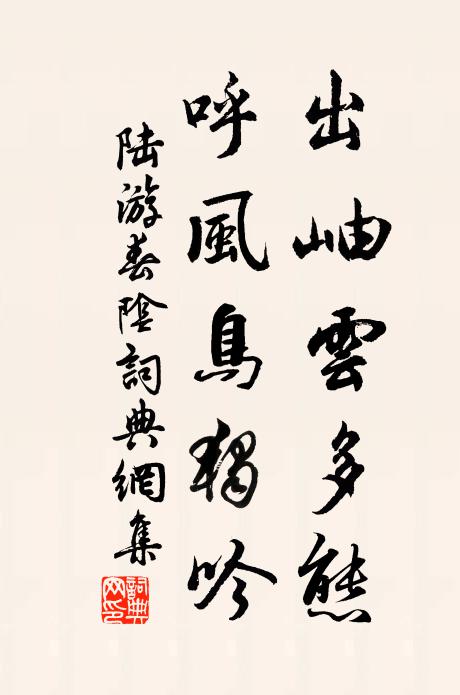 出岫雲多態
呼風鳥獨吟
陸游春陰詞典網集
詞典网印